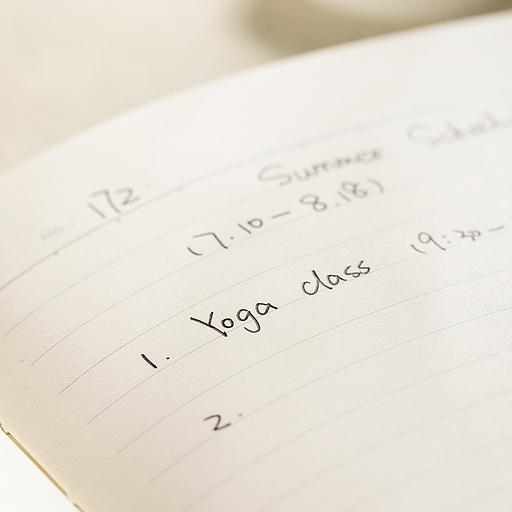 No. 172
Summer
(7.10 - 8.18)
1. Yoga class (9:30 -
2.